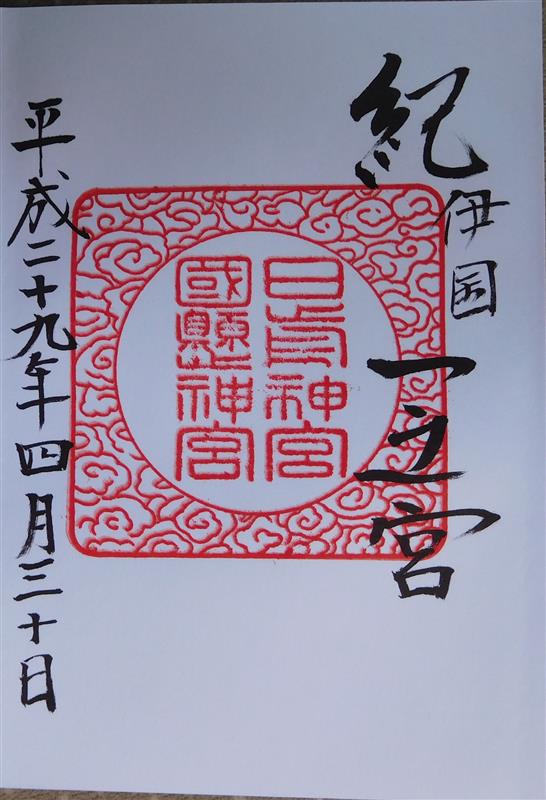 紀伊国一之宮
日前神宮
國懸神宮
平成二十九年四月三十日